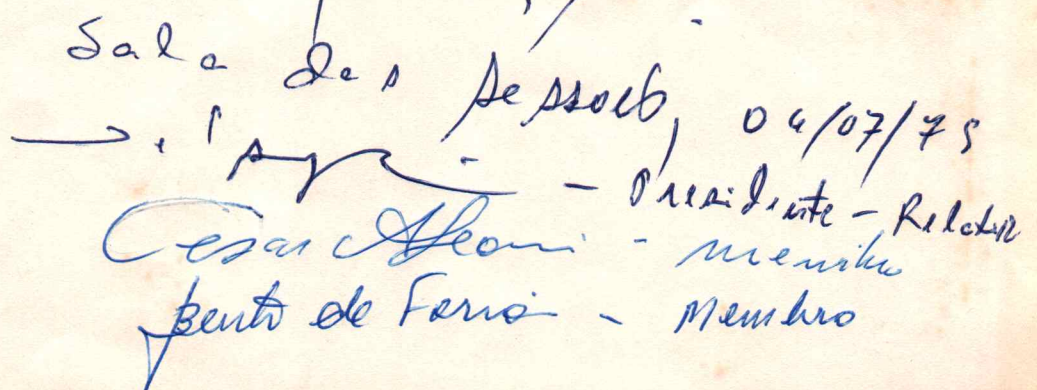 Sala das Sessões, 04/07/75
- Presidente - Relator
Cesar - membro
Bento de Faria - Membro